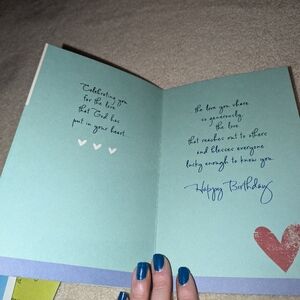 Celebrating you
for the love
that God has
put in your heart
the love you share
so generously,
the love
that reaches out to others
and blesses everyone
lucky enough to know you.
Happy Birthday